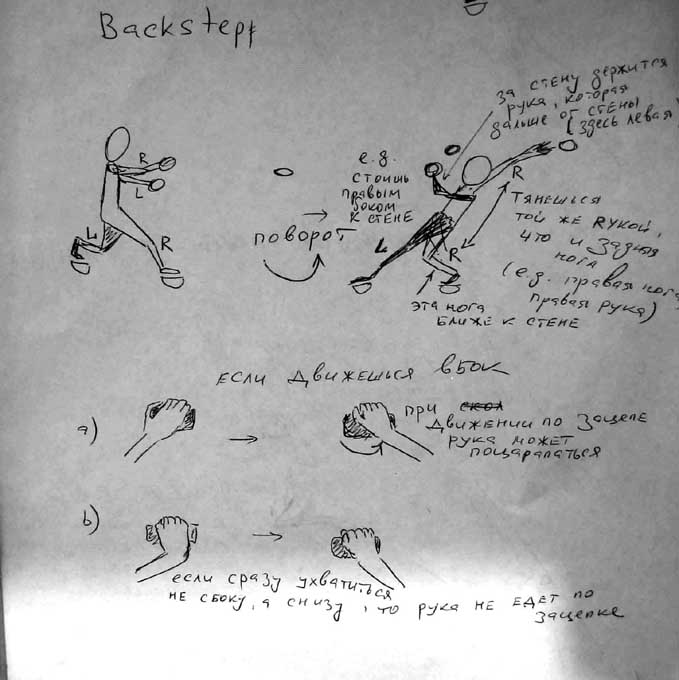 Backstepp
за стену держится
рука, которая
дальше от стены
(здесь левая
R
L
L
R
е.g.
стоишь
правым
боком
к стене
поворот
R
L
R
Тянешься
той же Rукой,
что и задняя
нога
(е.g. правая нога,
правая рука)
эта нога
ближе к стене
если движешься вбок
a)
при скол
движении по зацепе
рука может
поцарапаться
b)
если сразу ухватиться
не сбоку, а снизу, то рука не едет по
зацепке